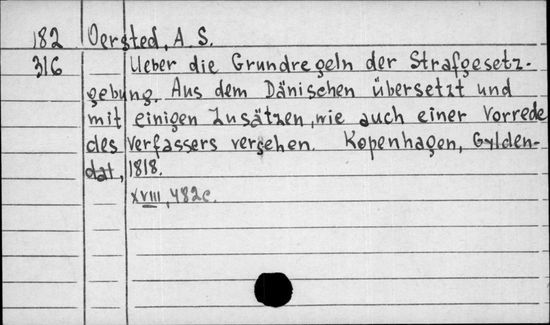 182 Oersted, A. S.
316 Ueber die Grundregeln der Strafgesetz-
gebung. Aus dem Dänischen übersetzt und
mit einigen Zusätzen, wie auch einer Vorrede
des Verfassers versehen. Kopenhagen, Gylden-
dat, 1818.
XVIII, 482c.